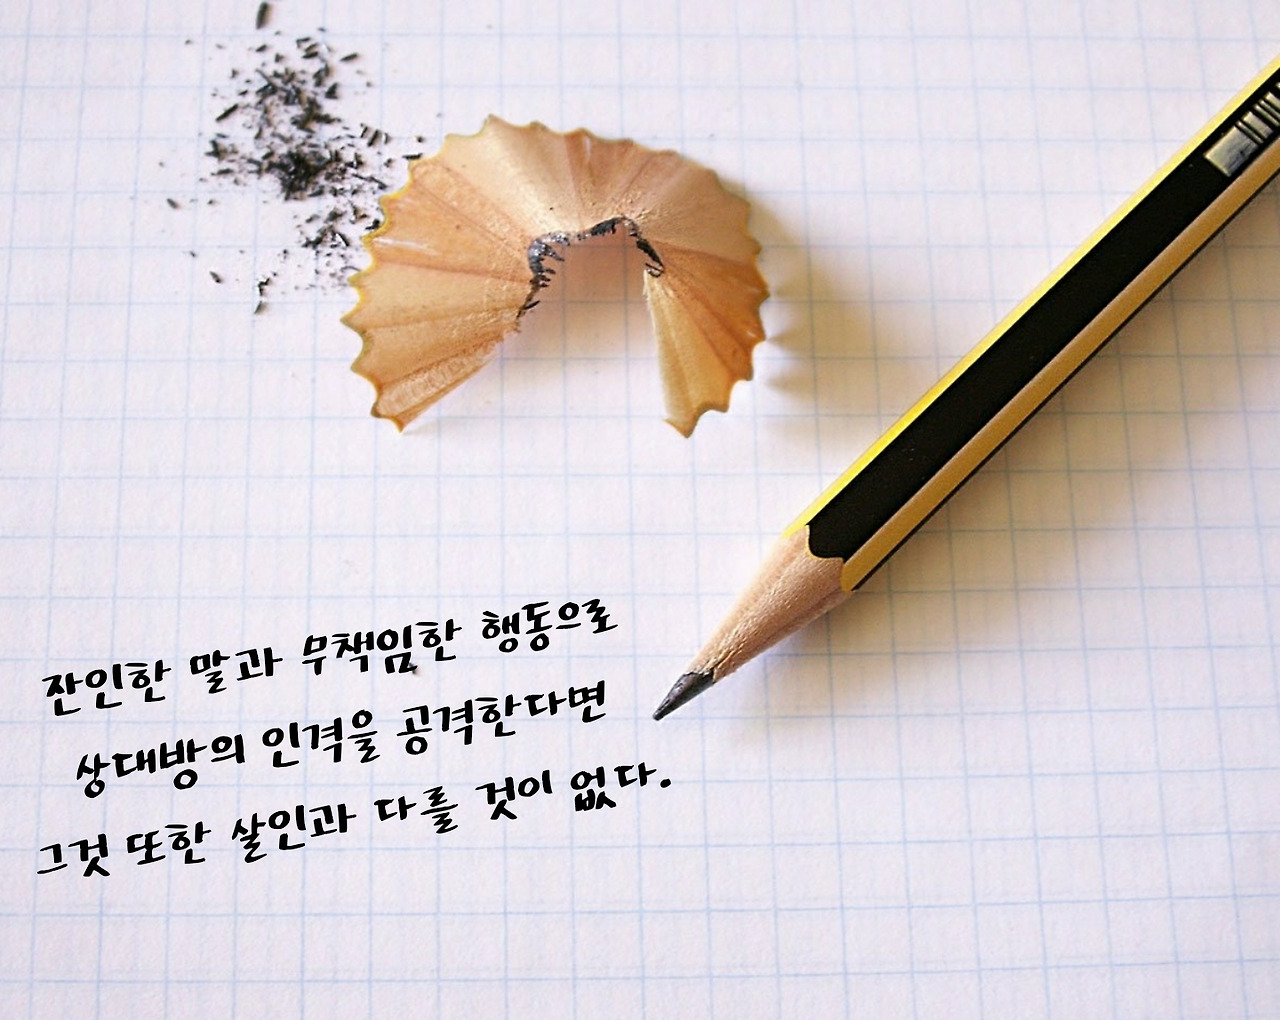 잔인한 말과 무책임한 행동으로
상대방의 인격을 공격한다면
그것 또한 살인과 다를 것이 없다.